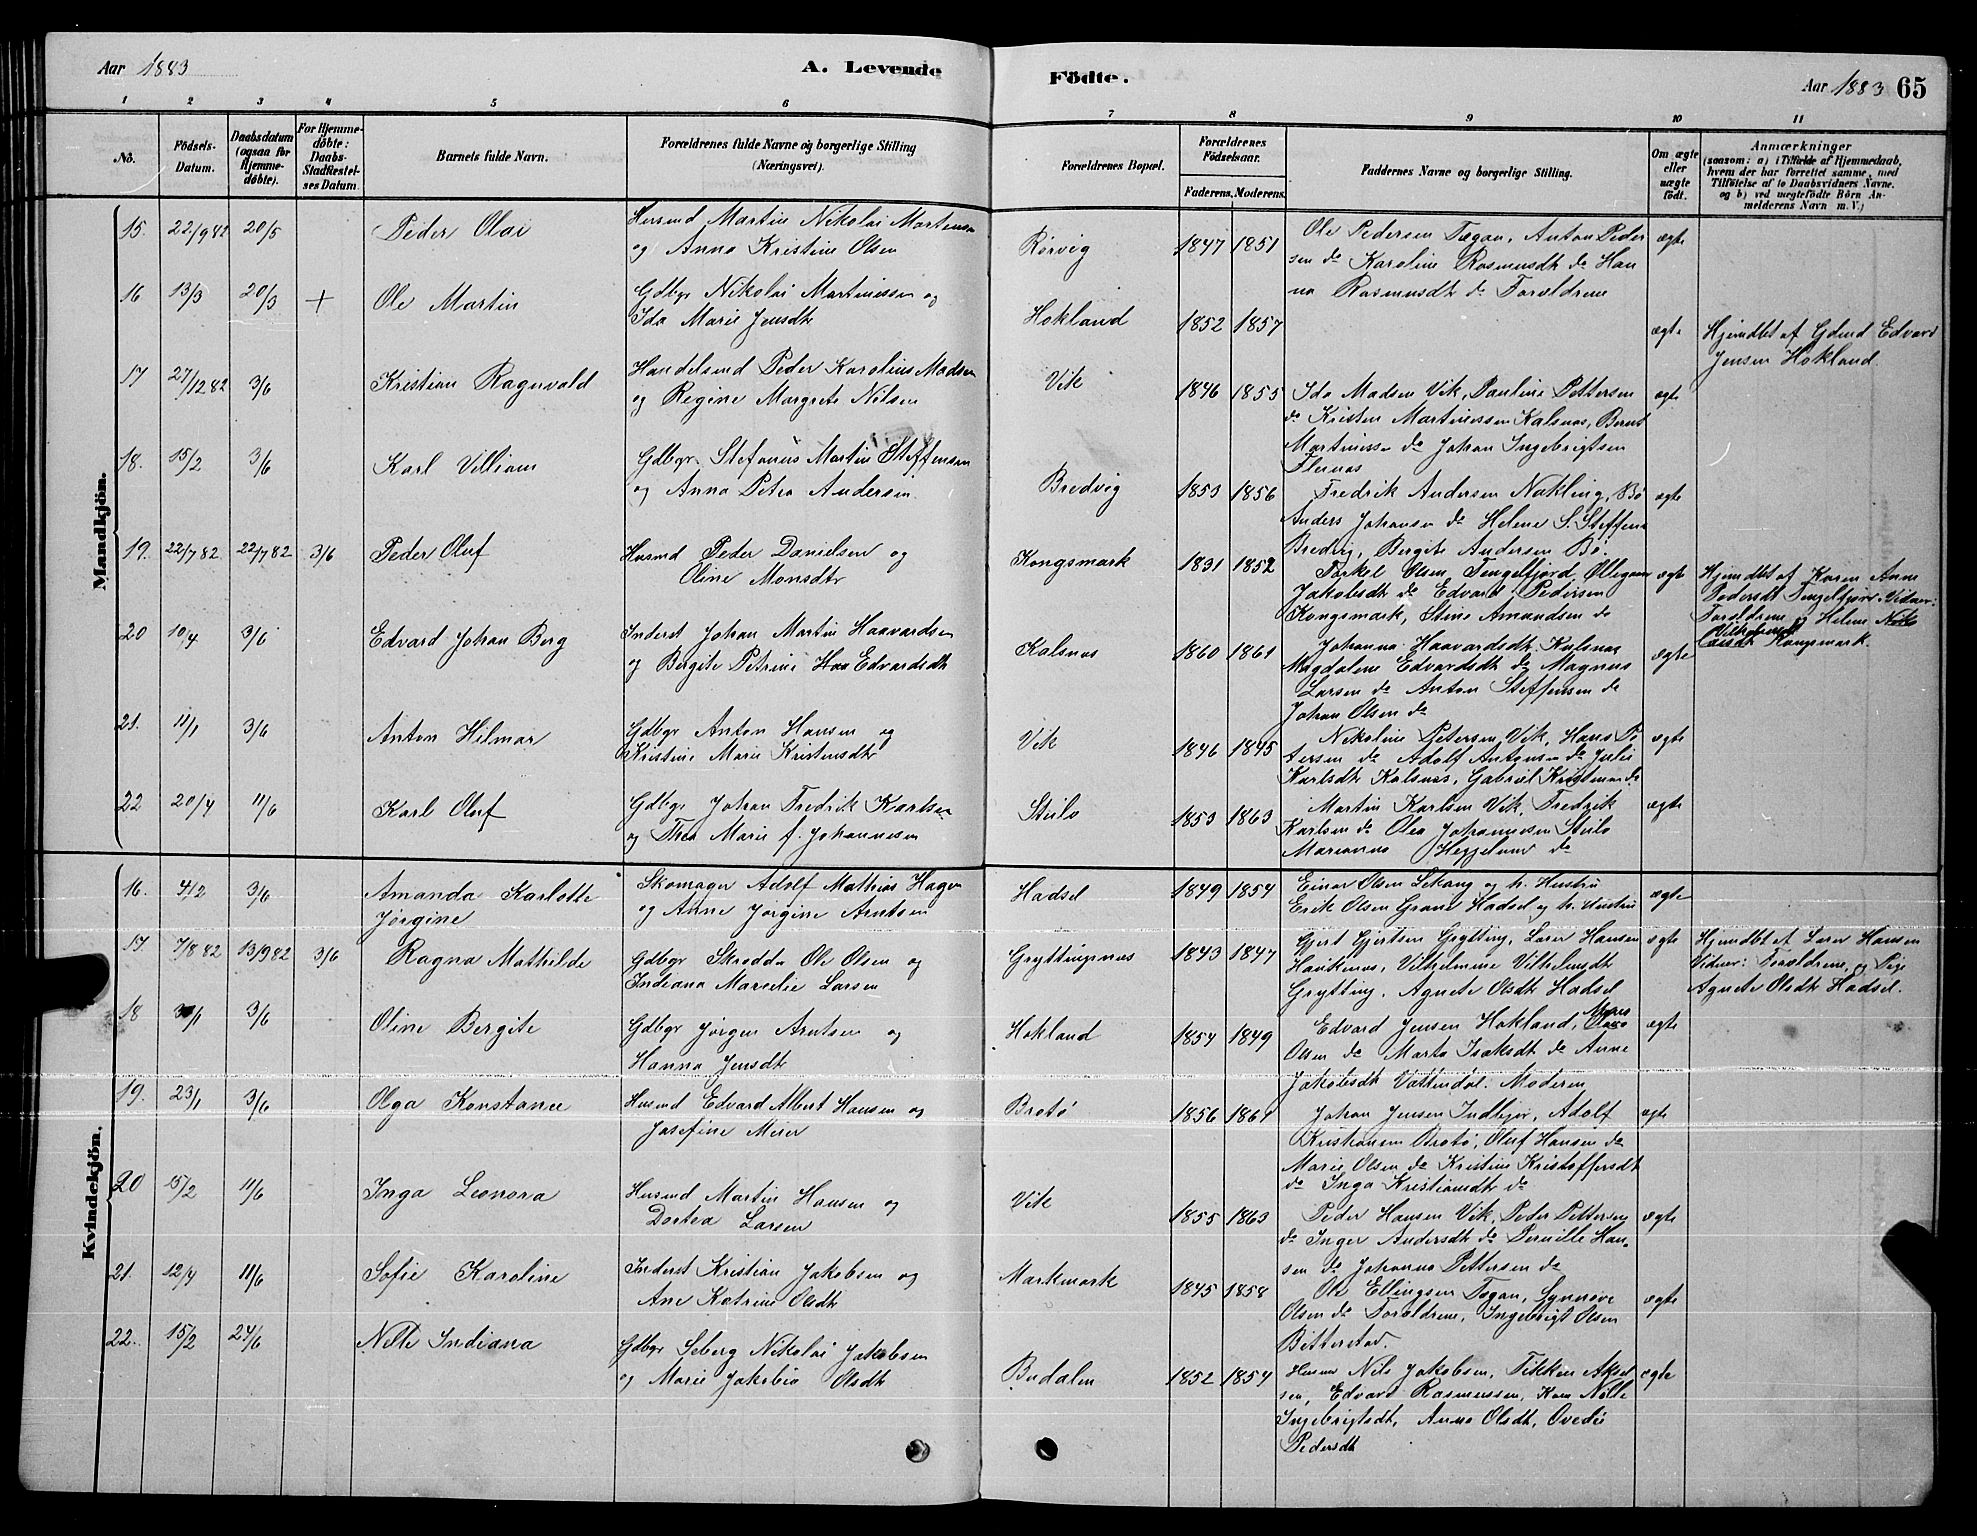 Aar 1883
A. Levende
Födte.
Aar 1883 65
1 2 3 4 5 6 7 8 9 10 11
No.
Födsels-
Datum.
Daabsdatum
(ogsaa for
Hjemme-
döbte).
For Hjemme-
döbte:
Daabs-
Stadfæstel-
ses Datum.
Barnets fulde Navn.
Forældrenes fulde Navne og borgerlige Stilling
(Næringsvei).
Forældrenes Bopæl.
Forældrenes
Födselsaar.
Faderens. Moderens.
Faddernes Navne og borgerlige Stilling.
Om ægte
eller
uægte
födt.
Anmærkninger
(saasom: a) i Tilfælde af Hjemmedaab,
hvem der har forrettet samme, med
Tilföielse af to Daabsvidners Navne.
og b) ved uægtefödte Börn An-
melderens Navn m. V.)
Mandkjön.
15. 22/9 82 20/5 Peder Olai
Husmd Martin Nikolai Martinsen
og Anna Kristine Olsen
Rørvig 1847 1851
Ole Pedersen Tegan, Anton Peder
sen do Karoline Rasmusdt do Han
na Rasmusdt do Forældrene
ægte
16 13/3 20/3 + Ole Martin
Gdbgr Nikolai Martinissen og
Ida Marie Jensdtr
Hokland 1852 1857
ægte
Hjemdbt af Gdmd Edvard
Jensen Hokland.
17 27/12 82 3/6 Kristian Ragnvald
Handelsmd Peder Karolius Madsen
og Regine Margrete Nilsen
Vik 1846 1855
Ida Madsen Vik, Pauline Pettersen
do Kristen Martinissen Kalsnæs, Bernt
Martiniss do Johan Ingebrigtsen
Flesnæs
ægte
18. 15/2 3/6 Karl Villiam
Gdbgr. Stefanus Martin Steffensen
og Anna Petra Andersen.
Bredvig 1853 1856
Fredrik Andersen Nokling, Bö
Anders Johansen do Helene S. Steffens
Bredvig, Bergite Andersen Bö.
ægte
19. 22/7 82 22/7 82 3/6 Peder Oluf
Husmd Peder Danielsen og
Oline Monsdtr
Kongsmark 1831 1852
Torkel Olsen Tengelfjord, Ollegaan
Jakobsdt do Edvard Pedersen
Kongsmark, Stine Amundsen do
ægte
Hjemdbt af Karen Anna
Pedersdt Tengelfjord. Vidner:
Forældrene og Helene
Kongsmark.
20 10/4 3/6 Edvard Johan Berg
Inderst Johan Martin Haavardsen
og Bergite Petrine Edvardsdt
Kalsnæs 1860 1861
Johanna Haavardsdt. Kalsnæs
Magdalene Edvardsdt do Magnus
Larsen do Anton Steffensen do
Johan Olsen do
ægte
21. 11/1 3/6 Anton Hilmar
Gdbgr Anton Hansen og
Kristine Marie Kristensdtr
Vik 1846 1845
Nikoline Petersen Vik, Hans Pe
dersen do Adolf Antonsen do Julie
Karlsdt Kalsnæs, Gabriel Kristensen do
ægte
22 20/4 11/6 Karl Oluf
Gdbgr Johan Fredrik Karlsen
og Thea Marie f. Johannesen
Steilo 1853 1863
Martin Karlsen Vik, Fredrik
Karlsen do Olea Johannesen Steilo
Marianna Heggelund do
ægte
Kvindekjön.
16. 4/2 3/6 Amanda Karlotte
Jørgine
Skomager Adolf Mathias Hagen
og Anne Jørgine Arntsen
Hadsel 1849 1854
Einar Olsen Lekang og h. Hustru
Erik Olsen Grane Hadsel og h. Hustru
ægte
17 7/8 82 13/9 82 3/6 Ragna Mathilde
Gdbgr Skrædder Ole Olsen og
Indiana Marcelie Larsen
Gryttingnæs 1843 1847
Gjert Gjertsen Grytting, Lorer Hansen
Haukenæs, Vilhelmine Vilhelmsdt
Grytting, Agnete Olsdt Hadsel
ægte
Hjemdbt af Lorer Hansen
Vidner: Forældrene, og Pige
Agnete Olsdt Hadsel.
18 /1 3/6 Oline Bergite
Gdbgr Jørgen Arntsen og
Hanna Jensdt
Hokland 1854 1849
Edvard Jensen Hokland, Mons
Olsen do Marta Isaksdt do Anne
Jakobsdt Vattendal. Moderen
ægte
19. 23/1 3/6 Olga Konstance
Husmd Edvard Albert Hansen og
Josefine Meier
Brotö 1856 1861
Johan Jensen Indbjor, Adolf
Kristiansen Brotö, Oluf Hansen do
Marie Olsen do Kristine Kristoffersdt
do Inga Kristiansdtr do
ægte
20 15/2 11/6 Inga Leonora
Husmd Martin Hansen og
Dortea Larsen
Vik 1855 1863
Peder Hansen Vik, Peder Pettersen
do Inger Andersdt do Pernille Han-
sen do Johanna Pettersen do
ægte
21. 12/4 11/6 Sofie Karoline
Inderst Kristian Jakobsen og
Ane Katrine Olsdt
Markmark 1845 1858
Ole Ellingsen Tegan, Synnøve
Olsen do Forældrene, Ingebrigt Olsen
Bitterstad.
ægte
22. 15/2 24/6 Nelle Indiana
Gdbgr Seberg Nikolai Jakobsen
og Marie Jakobia Olsdt
Budalen 1852 1854
Husmd Nils Jakobsen, Tikken Aksel
sen, Edvard Rasmussen, Kone Nelle
Ingebrigtsdt, Anna Olsdt, Ovedie
Pedersdt
ægte